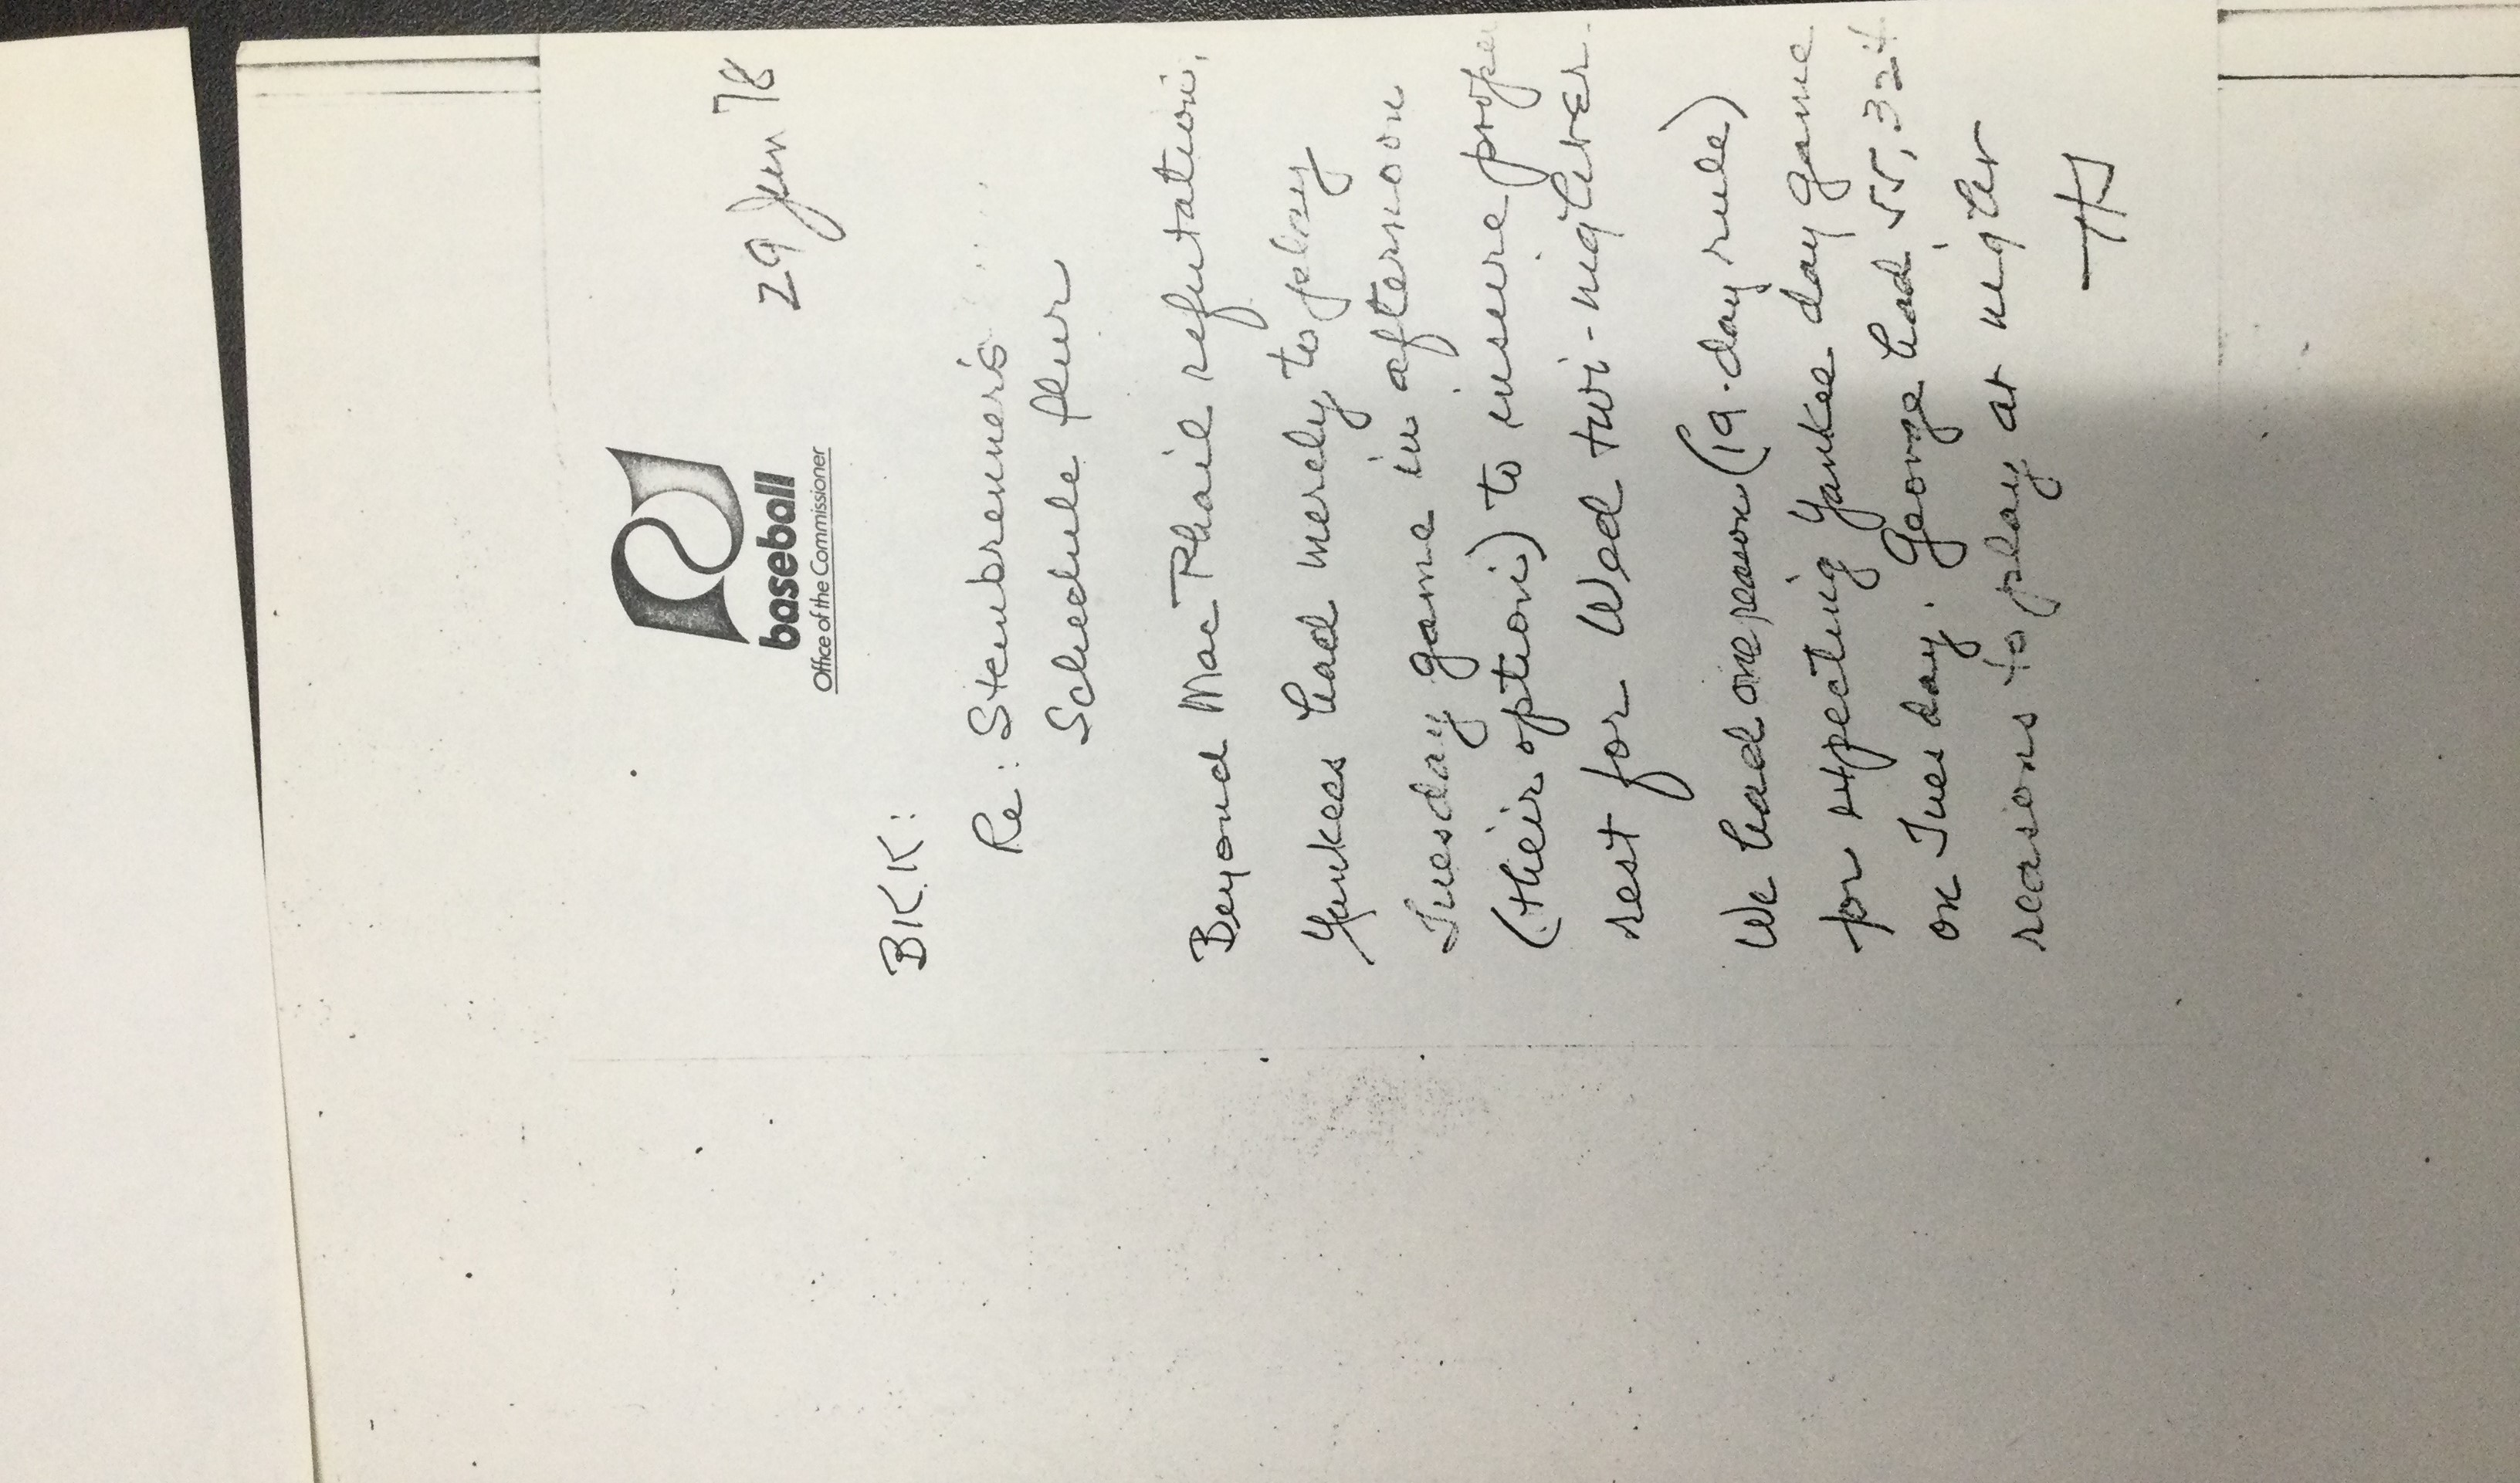 baseball
Office of the Commissioner
29 Jun 78
BKK:
Re: Steinbrenner's
Schedule flur
Beyond MacPhail refutation,
Yankees had merely to play
Tuesday game in afternoon
(their option) to insure prope
rest for Wed twi-nighter.
We had one reason (19-day rule)
for expecting Yankee day game
on Tuesday. George had 55,324
reasons to play at night